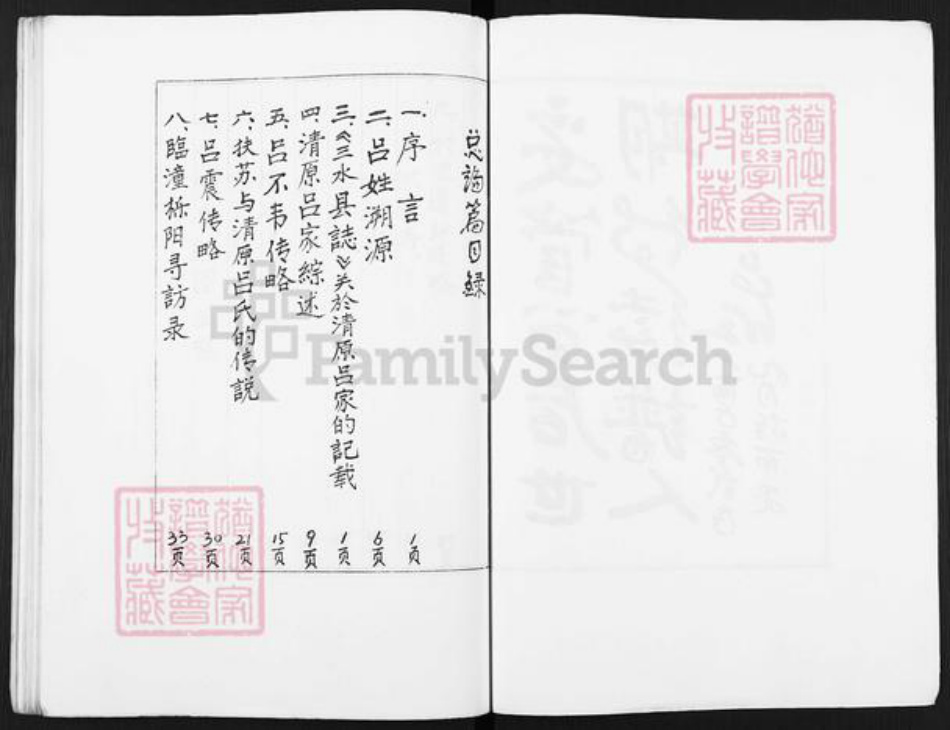 总論篇目録
一、序言 1页
二、吕姓溯源 6页
三、《三水县誌》关於清原吕家的記载 1页
四、清原吕家綜述 9页
五、吕不韦传略 15页
六、扶苏与清原吕氏的传説 21页
七、吕震传略 30页
八、臨潼栎阳寻訪录 33页
FamilySearch
譜學會
收藏
譜學會
收藏